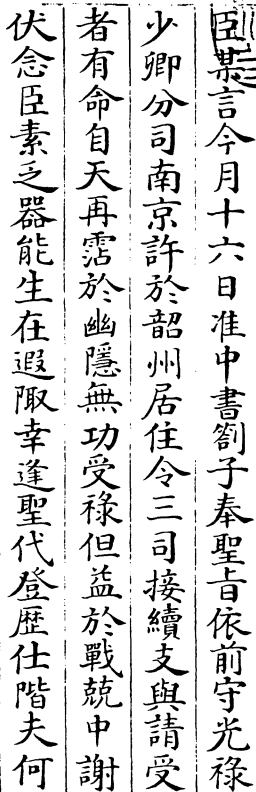 臣某言今月十六日准中書劄子奉聖旨依前守光祿
少卿分司南京許於韶州居住令三司接續支與請受
者有命自天再霑於幽隱無功受祿但益於戰兢中謝
伏念臣素乏器能生在遐陬幸逢聖代登歷仕階夫何